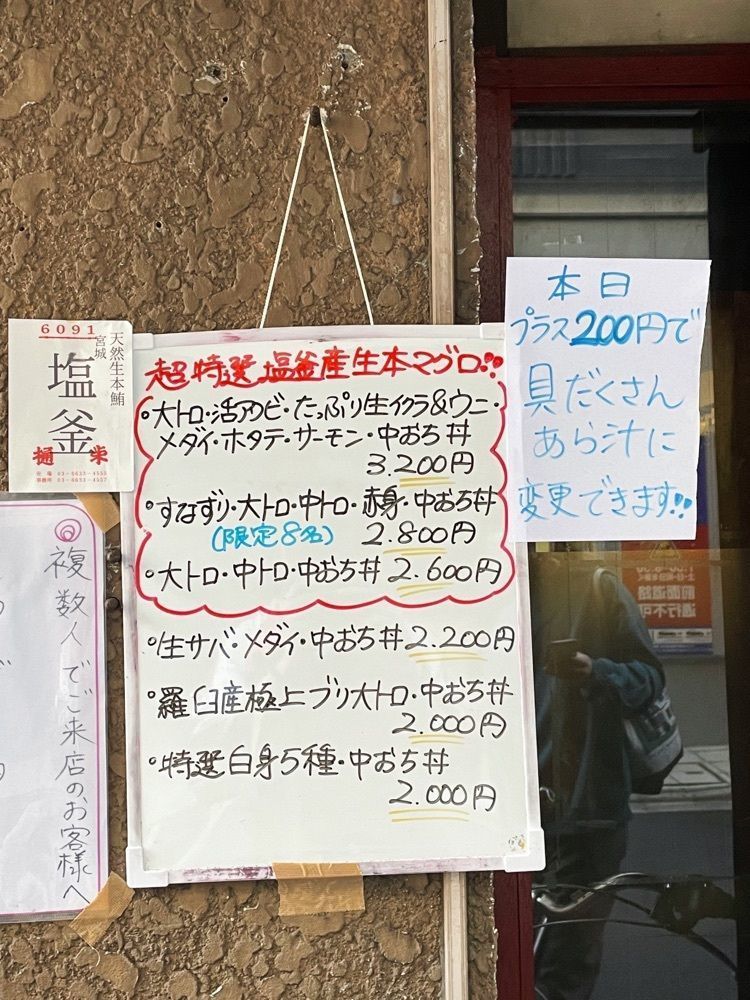 6091
天然生本鮪
宮城
塩釜
樋栄
複数人でご来店のお客様へ
超特選 塩釜産生本マグロ!!
・大トロ・活アワビ・たっぷり生イクラ&ウニ・
メダイ・ホタテ・サーモン・中おち丼
3,200円
・すなずり・大トロ・中トロ・赤身・中おち丼
(限定8名) 2.800円
・大トロ・中トロ・中おち丼 2.600円
・生サバ・メダイ・中おち丼 2.200円
・羅臼産極上ブリ大トロ・中おち丼
2.000円
・特選白身5種・中おち丼
2.000円
本日
プラス200円で
具だくさん
あら汁に
変更できます!!
前面道路
通行不可